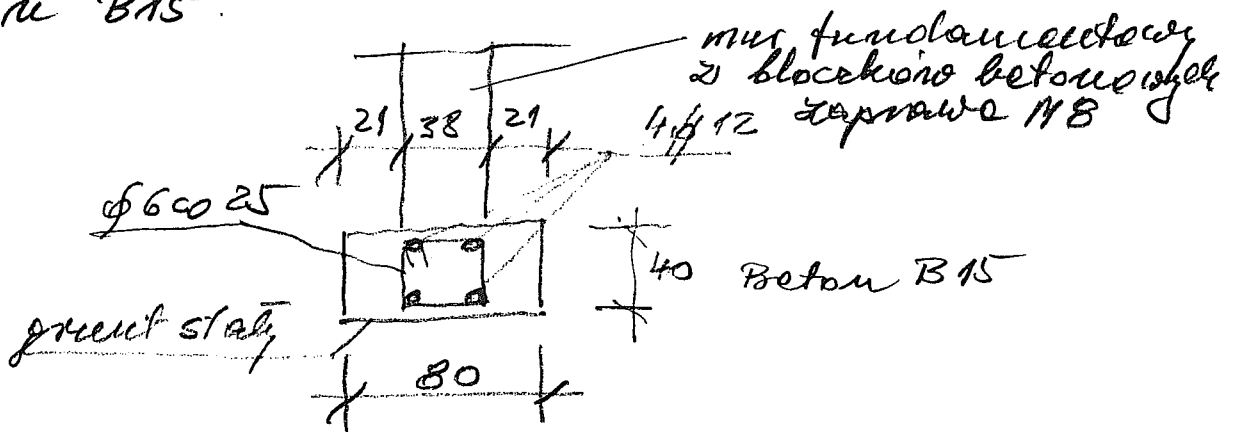 B15.
mur fundamentowy
z bloczków betonowych
zaprawa M8
21 38 21
4 ϕ 12
ϕ6 co 25
40 Beton B15
grunt stały
80